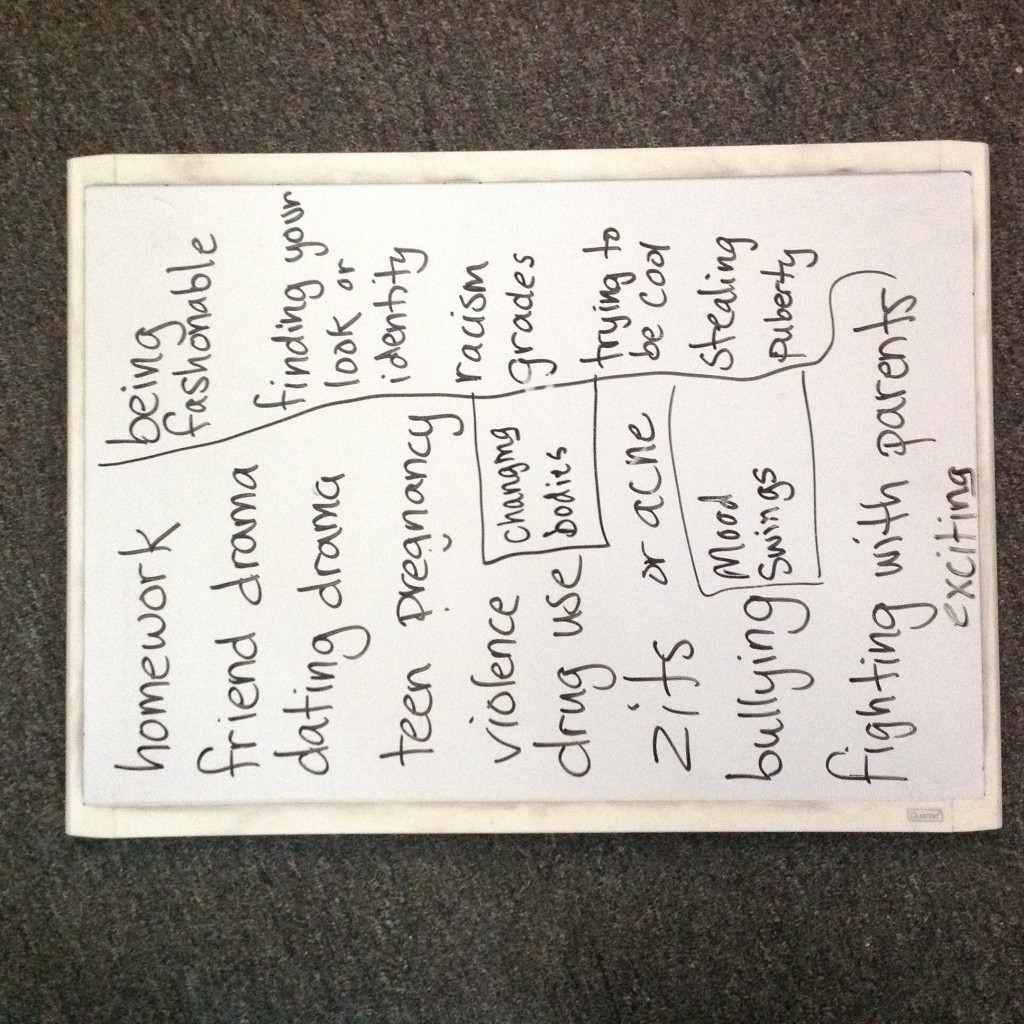 homework
friend drama
dating drama
teen pregnancy
violence
drug use
zits or acne
bullying
fighting with parents
exciting
Changing
bodies
Mood
Swings
being
fashonable
finding your
look or
identity
racism
grades
trying to
be cool
Stealing
puberty
Quartet